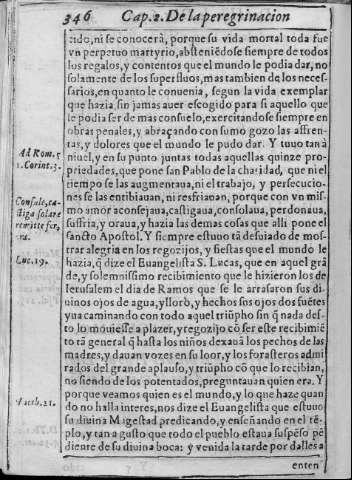 346 Cap. 2. De la peregrinacion
zido, ni se conocerà, porque su vida mortal toda fue
vn perpetuo martyrio, absteniẽdose siempre de todos
los regalos, y contentos que el mundo le podia dar, no
solamente de los superfluos, mas tambien de los neces-
sarios, en quanto le conuenia, segun la vida exemplar
que hazia, sin jamas auer escogido para si aquello que
le podia ser de mas consuelo, exercitandose siempre en
obras penales, y abraçando con sumo gozo las affren-
tas, y dolores que el mundo le pudo dar. Y tuuo tan à
Ad Rom. 5
niuel, y en su punto juntas todas aquellas quinze pro-
1. Corint. 3.
priedades, que pone san Pablo de la charidad, que ni el
tiempo se las augmentaua, ni el trabajo, y persecucio-
nes se las entibiauan, ni resfriauan, porque con vn mis-
Consule, ca-
mo amor aconsejaua, castigaua, consolaua, perdonaua,
stiga solare
suffria, y oraua, y hazia las demas cosas que alli pone el
remitte fer,
ora.
sancto Apostol. Y siempre estuuo tã desuiado de mos-
trar alegria en los regozijos, y fiestas que el mundo le
Luc. 19.
hazia, q̃ dize el Euangelista S. Lucas, que en aquel grã
de, y solemnissimo recibimiento que le hizieron los de
Ierusalem el dia de Ramos que se le arrasaron sus di-
uinos ojos de agua, y llorò, y hechos sus ojos dos fuẽtes
yua caminando con todo aquel triũpho sin q̃ nada des-
to lo mouiesse a plazer, y regozijo cõ ser este recibimiẽ
to tã general q̃ hasta los niños dexauã los pechos de las
madres, y dauan vozes en su loor, y los forasteros admi
rados del grande aplauso, y triũpho cõ que lo recibian,
no siendo de los potentados, preguntauan quien era. Y
porque veamos quien es el mundo, y lo que haze quan
Matth. 21.
do no halla interes, nos dize el Euangelista que estuuo
su diuina Magestad predicando, y enseñando en el tẽ-
plo, y tan a gusto que todo el pueblo estaua suspẽso pẽ
diente de su diuina boca: y venida la tarde por dalles a
enten